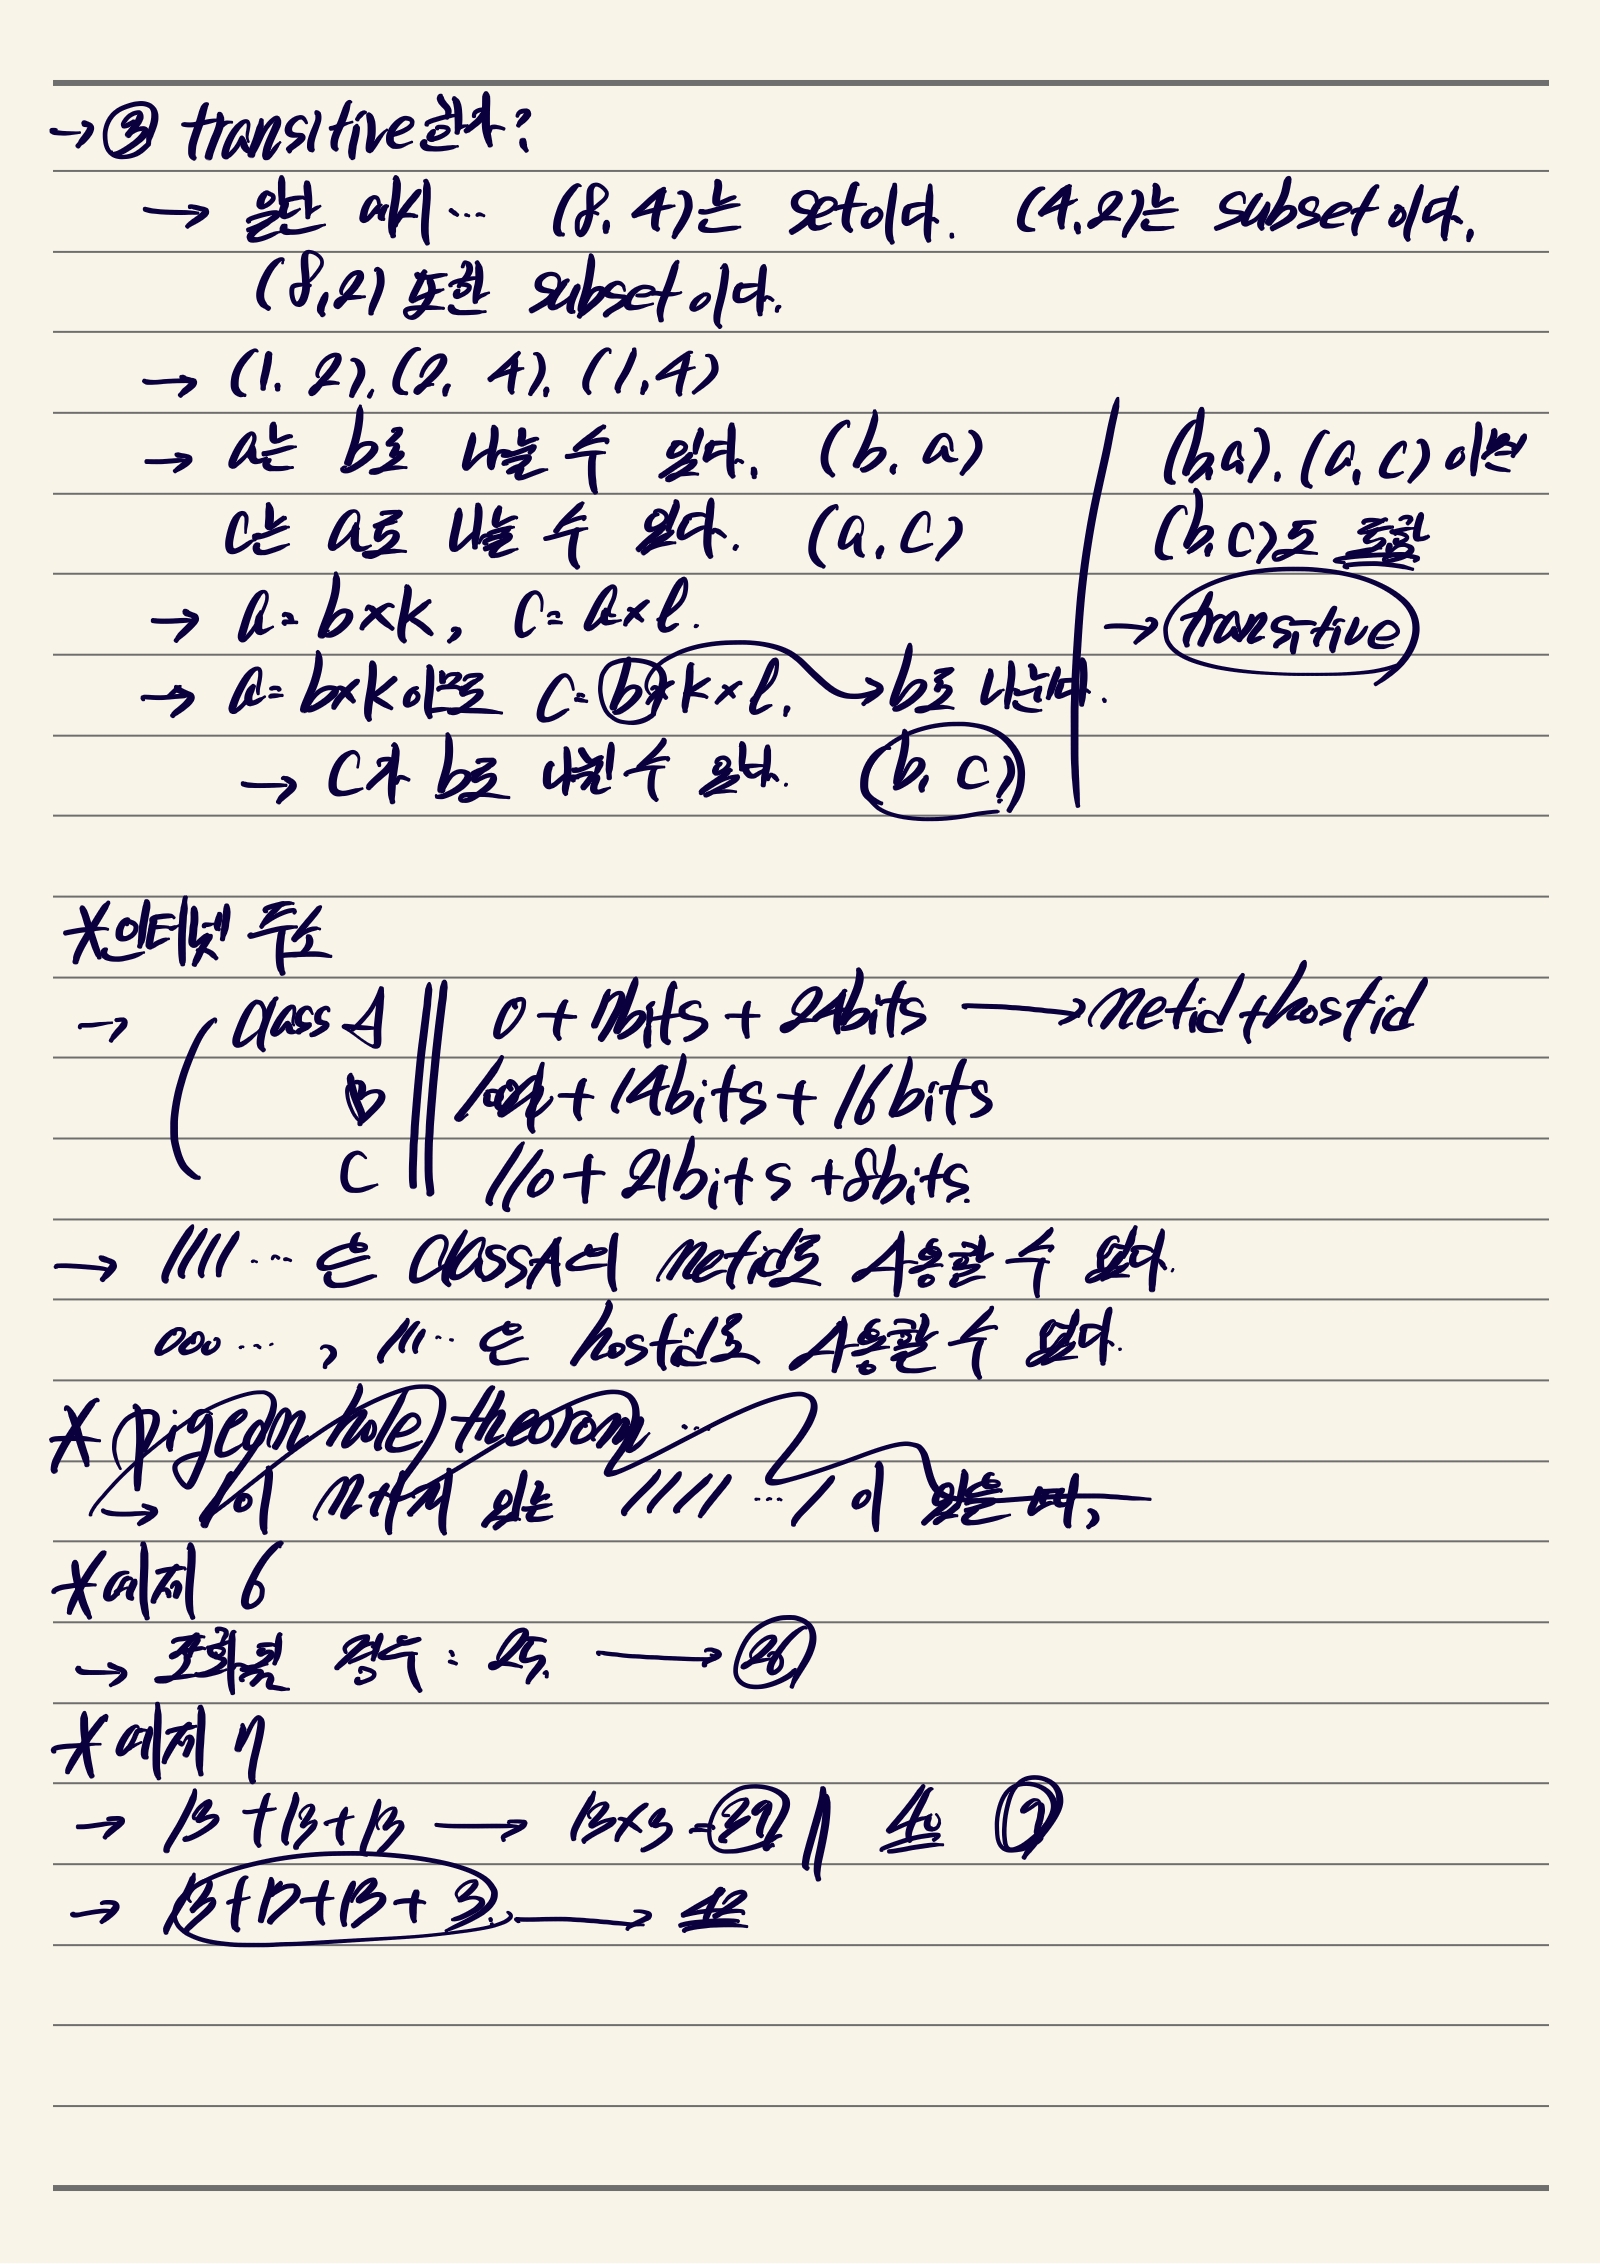 → ③ transitive한가?
→ 일단 a씨… (8, 4)는 set이다. (4,2)는 subset이다.
(8,2) 또한 subset이다.
→ (1, 2), (2, 4), (1,4)
→ a는 b로 나눌 수 있다. (b, a)
(b,a), (a, c) 이면
c는 a로 나눌 수 있다. (a, c)
(b, c)도 포함
→ a = b×k, c = a×l.
→ transitive
→ a = b×k이므로 c = b×k×l. → b로 나뉜다.
→ c가 b로 나뉠 수 있다. (b, c)
*인터넷 주소
→ ( class A || 0 + 7bits + 24bits → netid + hostid
B || 10 + 14bits + 16bits
C || 110 + 21bits + 8bits
→ 1111… 은 classA의 netid로 사용할 수 없다.
000…, 111… 은 hostid로 사용할 수 없다.
* pigeon hole theorom …
→ 1이 n까지 있는 1111…1 이 있을 때,
*예제 6
→ 초콜릿 점수 : 25. → 26
*예제 7
→ 13+13+13 → 13×3 = 39 || 40 ?
→ 13+13+13+3. → 42